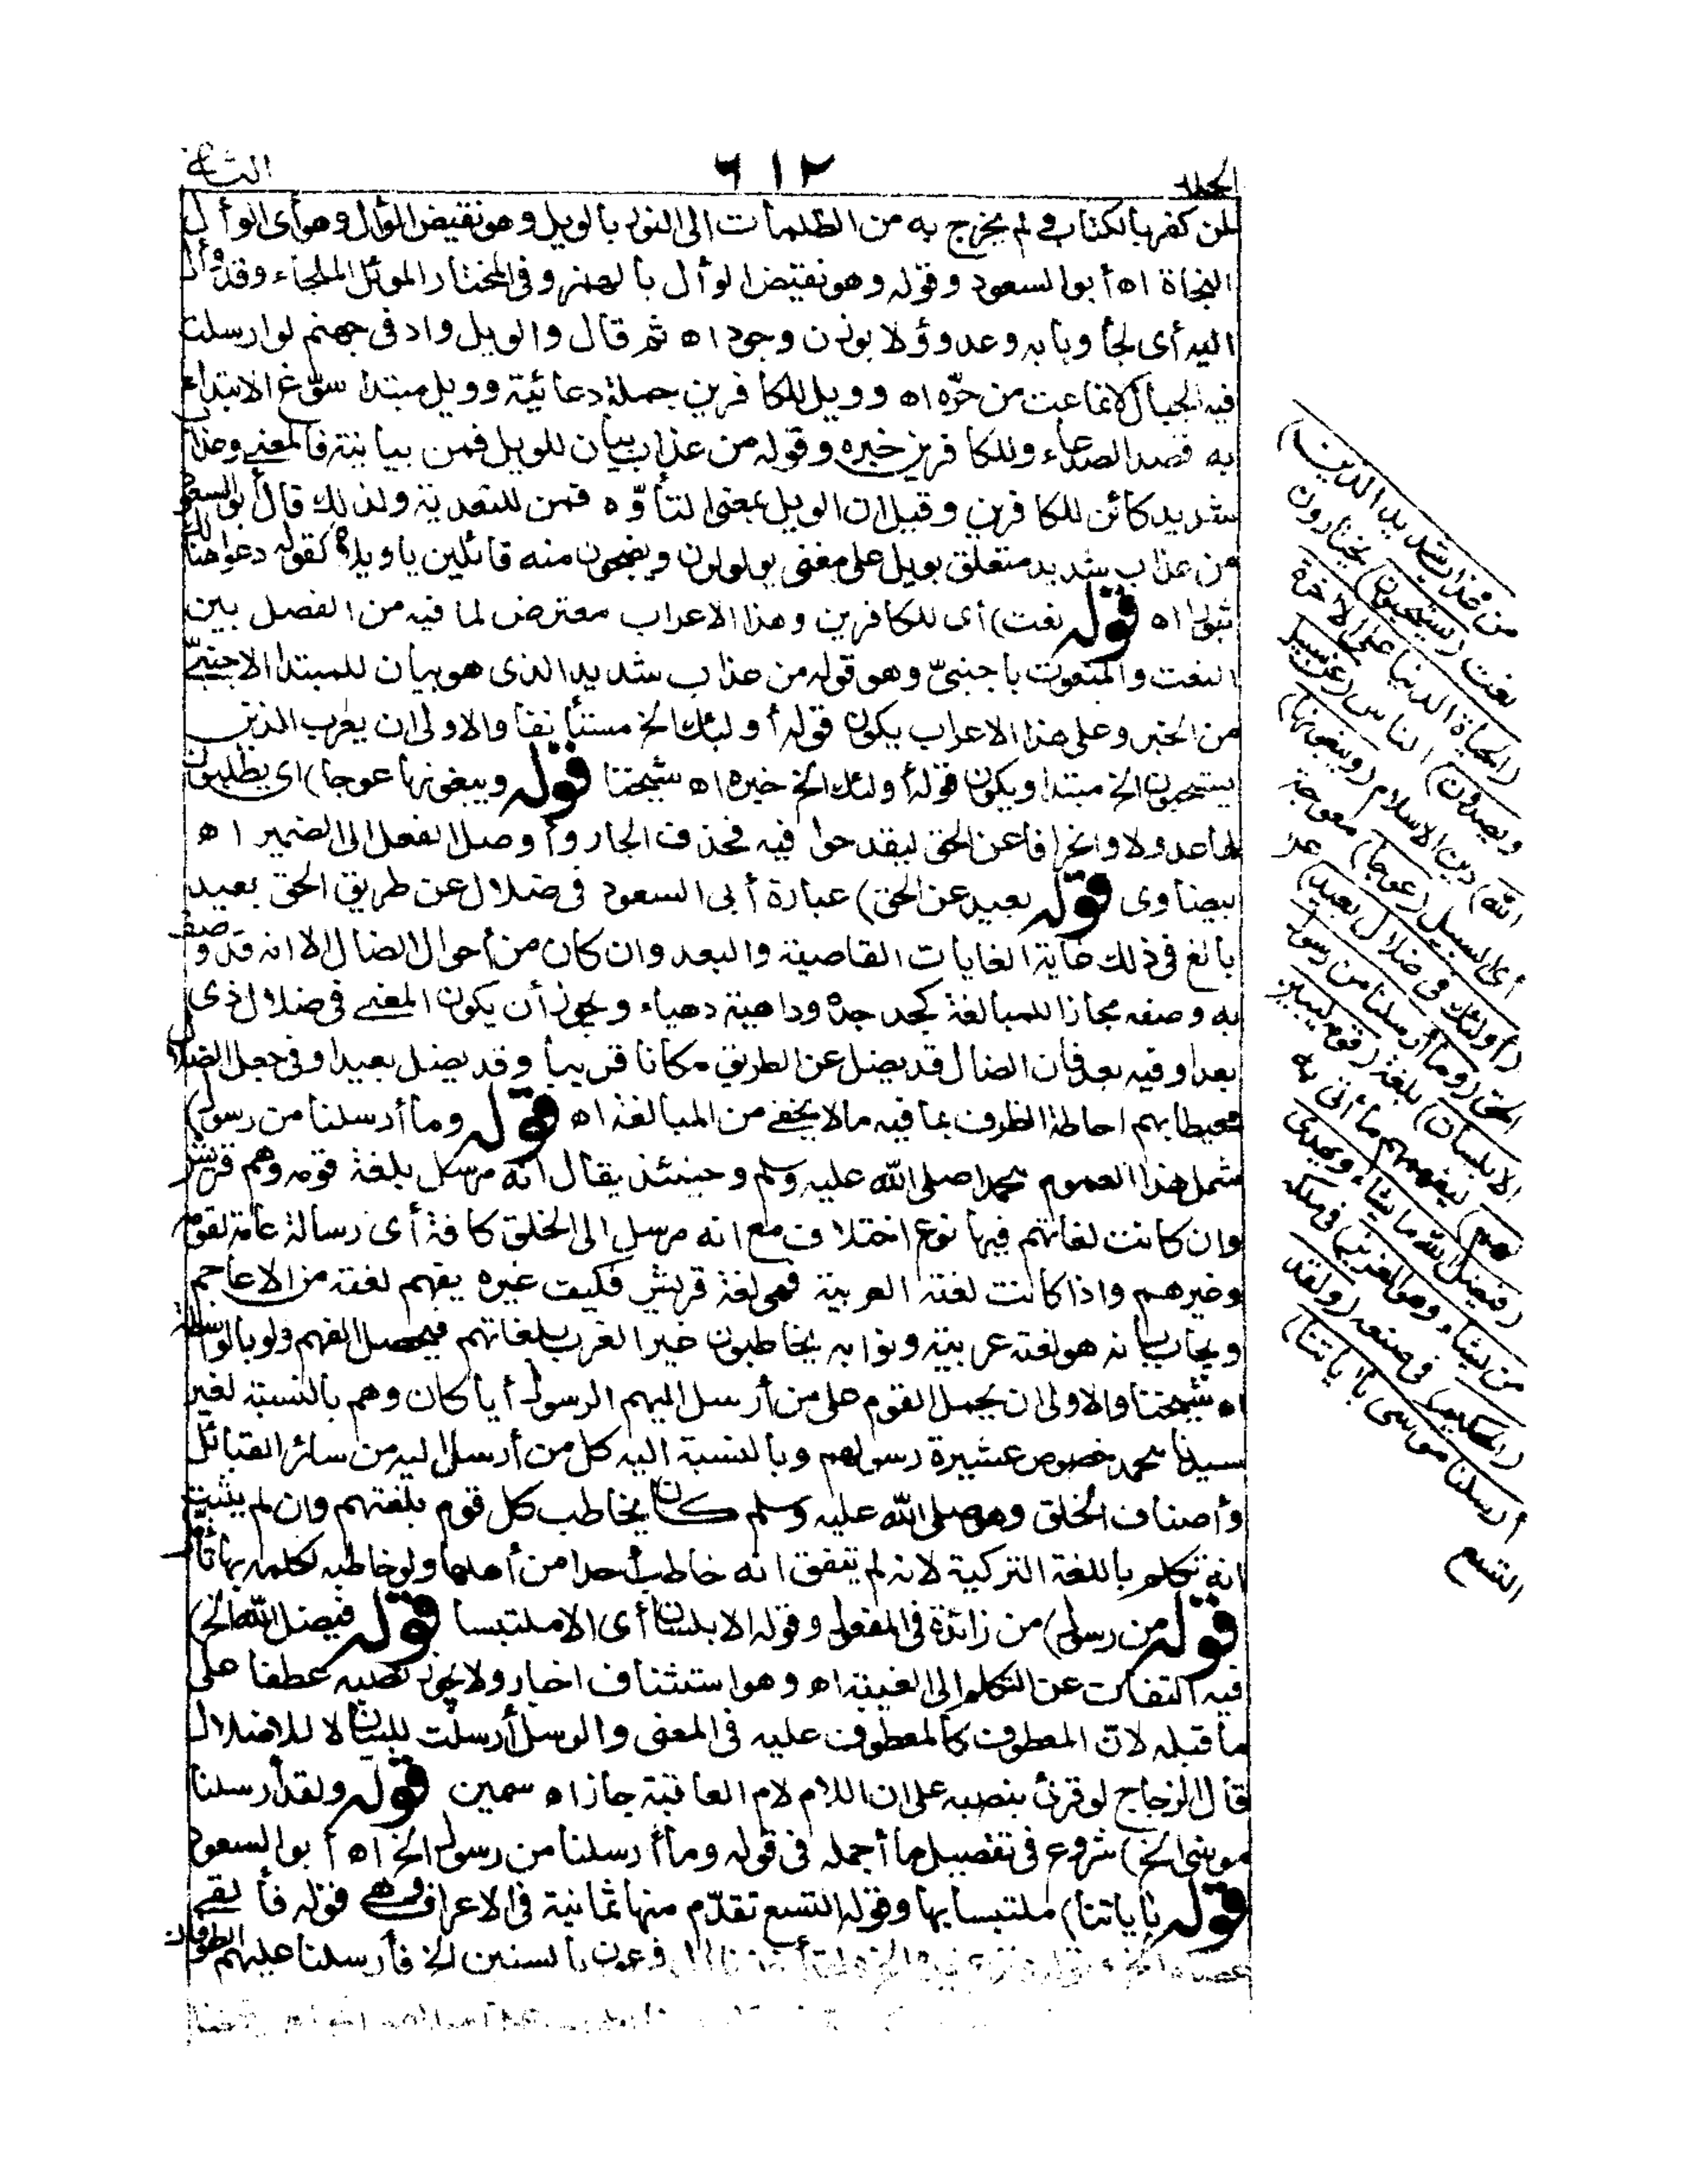 الجلد ٦١٢ الثاني
لمن كفر بالكتاب ولم يخرج به من الظلمات الى النور بالويل وهو نقيض الوأل وهو أى الوأل
النجاة اه أبوالسعود وقوله وهو نقيض الوأل بالهمز وفى المختار الموئل الملجاء وقد وأل
اليه أى لجأ وبابه وعد وؤلا بوزن وجود اه ثم قال والويل واد فى جهنم لو ارسلت
فيه الجبال لانماعت من حرّه اه وويل للكافرين جملة دعائية وويل مبتدا سوّغ الابتداء
به قصد الدعاء وللكافرين خبره وقوله من عذاب بيان للويل فمن بيانية فالمعنى وعذاب
شديد كائن للكافرين وقيل ان الويل بمعنى التأوّه فمن للتعدية ولذلك قال أبوالسعود
من عذاب شديد متعلق بويل على معنى يولولون ويضجون منه قائلين ياويلاه كقوله دعوا هنالك
ثبورا اه قوله نعت) أى للكافرين وهذا الاعراب معترض لما فيه من الفصل بين
النعت والمنعوت باجنبىّ وهو قوله من عذاب شديد الذى هو بيان للمبتدا الاجنبىّ
من الخبر وعلى هذا الاعراب يكون قوله أولئك الخ مستأنفا والاولى ان يعرب الذين
يستحبون الخ مبتدا ويكون قوله أولئك الخ خبره اه شيخنا قوله ويبغونها عوجا) اى يطلبون
لها عدولا وانحرافا عن الحق ليقدحوا فيه فحذف الجار وأوصل الفعل الى الضمير اه
بيضاوى قوله بعيد عن الحق) عبارة أبى السعود فى ضلال عن طريق الحق بعيد
بالغ فى ذلك غاية الغايات القاصية والبعد وان كان من أحوال الضال الا انه قد وصف
به وصفه مجازا للمبالغة كجد جده وداهية دهياء ويجوز أن يكون المعنى فى ضلال ذى
بعد او فيه بعد فان الضال قد يضل عن الطريق مكانا قريبا وقد يضل بعيدا وفى جعل الضلال
محيطا بهم احاطة الظرف بما فيه مالا يخفى من المبالغة اه قوله وما أرسلنا من رسول)
شمل هذا العموم محمدا صلى الله عليه وسلم وحينئذ يقال انه مرسل بلغة قومه وهم قريش
وان كانت لغاتهم فيها نوع اختلاف مع انه مرسل الى الخلق كافة أى رسالة عامة لقومه
وغيرهم واذا كانت لغته العربية فهى لغة قريش فكيف غيره يفهم لغته من الاعاجم
ويجاب بانه هو لغته عربية ونوابه يخاطبون غير العرب بلغاتهم فيحصل الفهم ولو بالواسطة
اه شيخنا والاولى ان يحمل القوم على من أرسل اليهم الرسول أيا كان وهم بالنسبة لغير
سيدنا محمد خصوص عشيرة رسولهم وبالنسبة اليه كل من أرسل اليه من سائر القبائل
وأصناف الخلق وهو صلى الله عليه وسلم كان يخاطب كل قوم بلغتهم وان لم يثبت
انه تكلم باللغة التركية لانه لم يتفق انه خاطب أحدا من أهلها ولو خاطبه لكلمه بها تأمل
قوله من رسول) من زائدة فى المفعول وقوله الا بلسان أى الا ملتبسا قوله فيضل الله الخ)
فيه التفات عن التكلم الى الغيبة اه وهو استئناف اخبار ولا يجوز نصبه عطفا على
ما قبله لانّ المعطوف كالمعطوف عليه فى المعنى والرسل أرسلت للبيان لا للاضلال
قال الزجاج لو قرئ بنصبه على ان اللام لام العاقبة جاز اه سمين قوله ولقد أرسلنا
موسى الخ) شروع فى تفصيل ما أجمله فى قوله وما أرسلنا من رسول الخ اه أبوالسعود
قوله بآياتنا) ملتبسا بها وقوله التسع تقدّم منها ثمانية فى الاعراف وهى قوله فألقى
عصاه فرعون بالسنين الخ فأرسلنا عليهم الطوفان
من عذاب شديد الذين)
نعت (يستحبون) يختارون
(الحياة الدنيا على الاخرة
ويصدون) الناس (عن سبيل
الله) دين الاسلام (ويبغونها)
أى السبيل (عوجا) معوجة
(أولئك فى ضلال بعيد) عن
الحق (وما أرسلنا من رسول
الا بلسان) بلغة (قومه ليبين
لهم) ليفهمهم ما أتى به
(فيضل الله من يشاء ويهدى
من يشاء وهو العزيز) فى ملكه
(الحكيم) فى صنعه (ولقد
أرسلنا موسى بآياتنا)
التسع